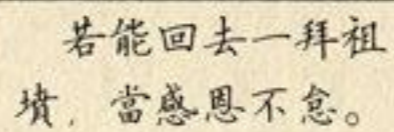 若能回去一拜祖
墳，當感恩不怠。